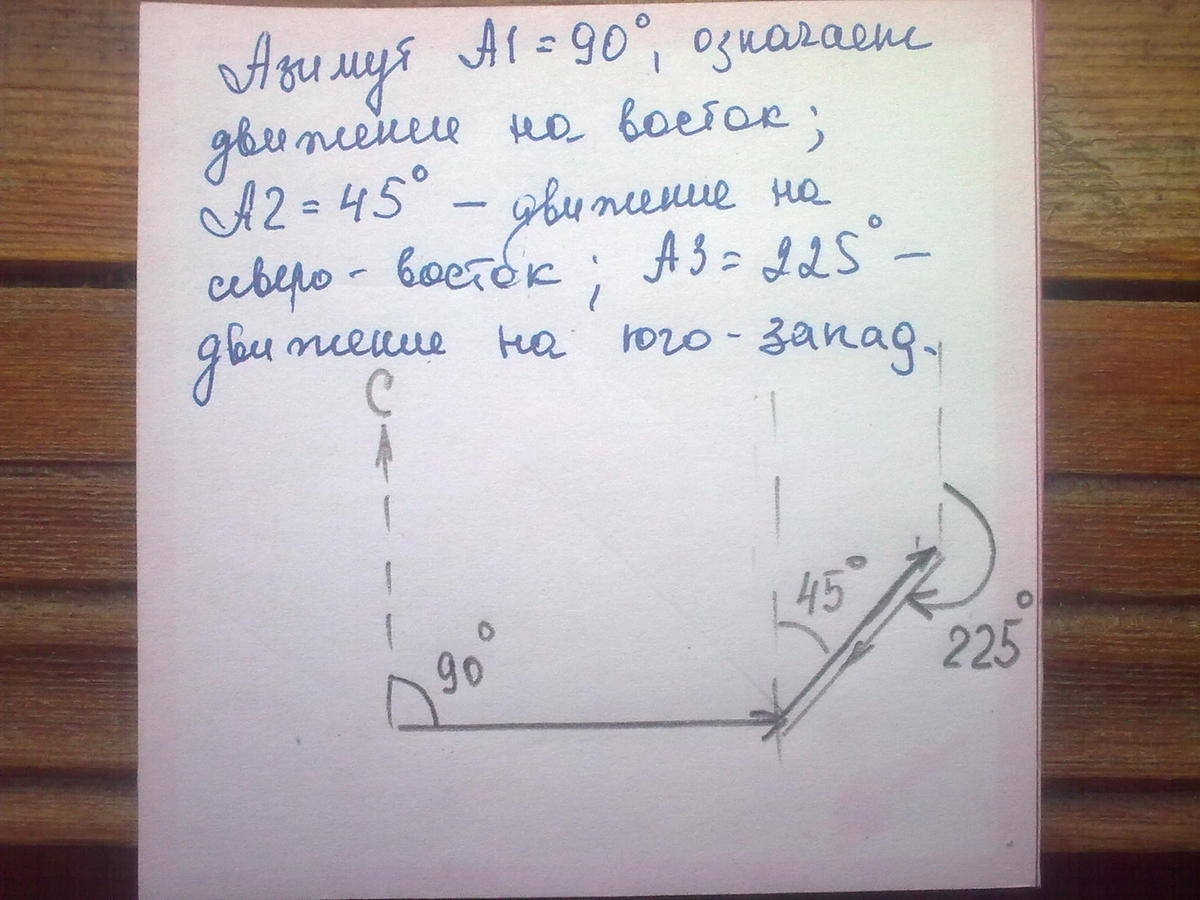 Азимут А1 = 90°, означает
движение на восток;
А2 = 45° – движение на
северо - восток; А3 = 225° –
движение на юго - запад.
С
45°
90°
225°